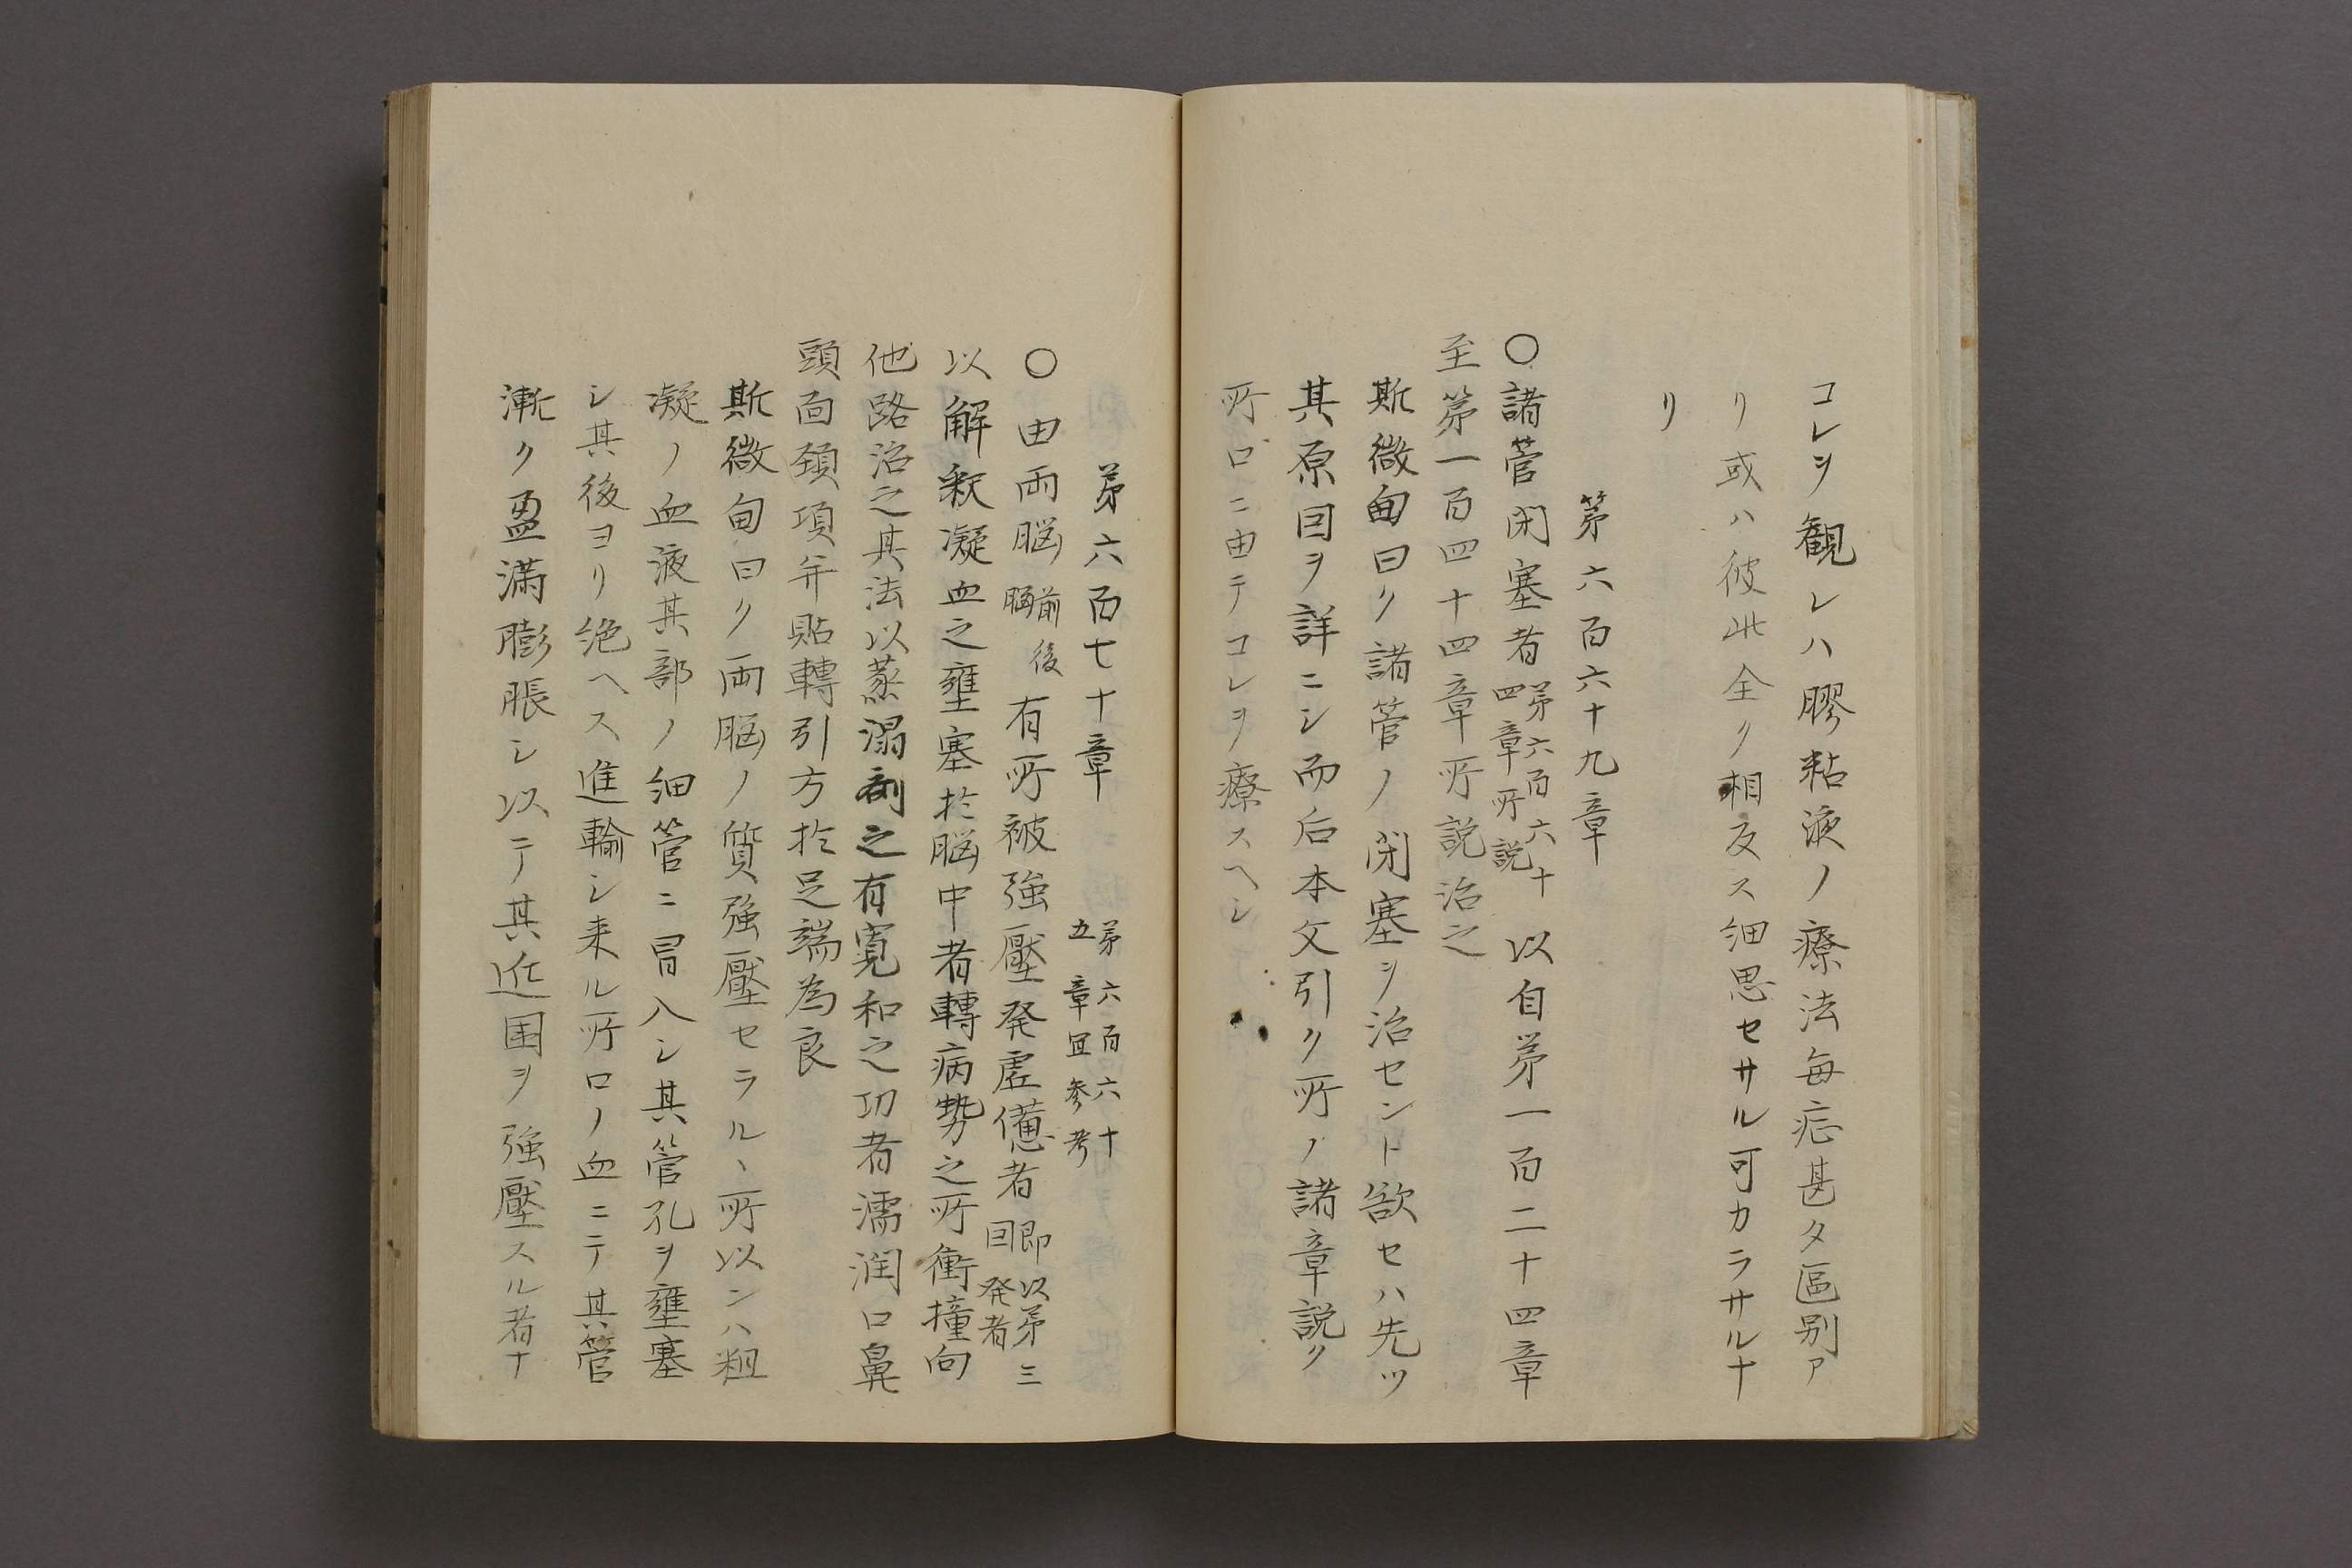 コレヲ観レハ膠粘液ノ療法毎症甚タ區別ア
リ或ハ彼此全ク相反ス細思セサル可カラサルナ
リ
第六百六十九章
〇諸管閉塞者第六百六十四章所説以自第一百二十四章
至第一百四十四章所説治之
斯微甸曰ク諸管ノ閉塞ヲ治セント欲セハ先ツ
其原因ヲ詳ニシ而后本文引ク所ノ諸章説ク
所ロニ由テコレヲ療スヘシ
第六百七十章 第六百六十五章宜参考
〇由両脳前後脳有所被強壓発虚憊者即以第三因発者
以解釈凝血之壅塞於脳中者轉病勢之所衝撞向
他路治之其法以蒸溻剤之有寛和之功者濡潤口鼻
頭面頚項并貼轉引方於足端為良
斯微甸曰ク両脳ノ質強壓セラルヽ所以ンハ粗
凝ノ血液其部ノ細管ニ冒入シ其管孔ヲ壅塞
シ其後ヨリ絶ヘス進輸シ来ル所ロノ血ニテ其管
漸ク盈満膨脹シ以テ其近囲ヲ強壓スル者ナ